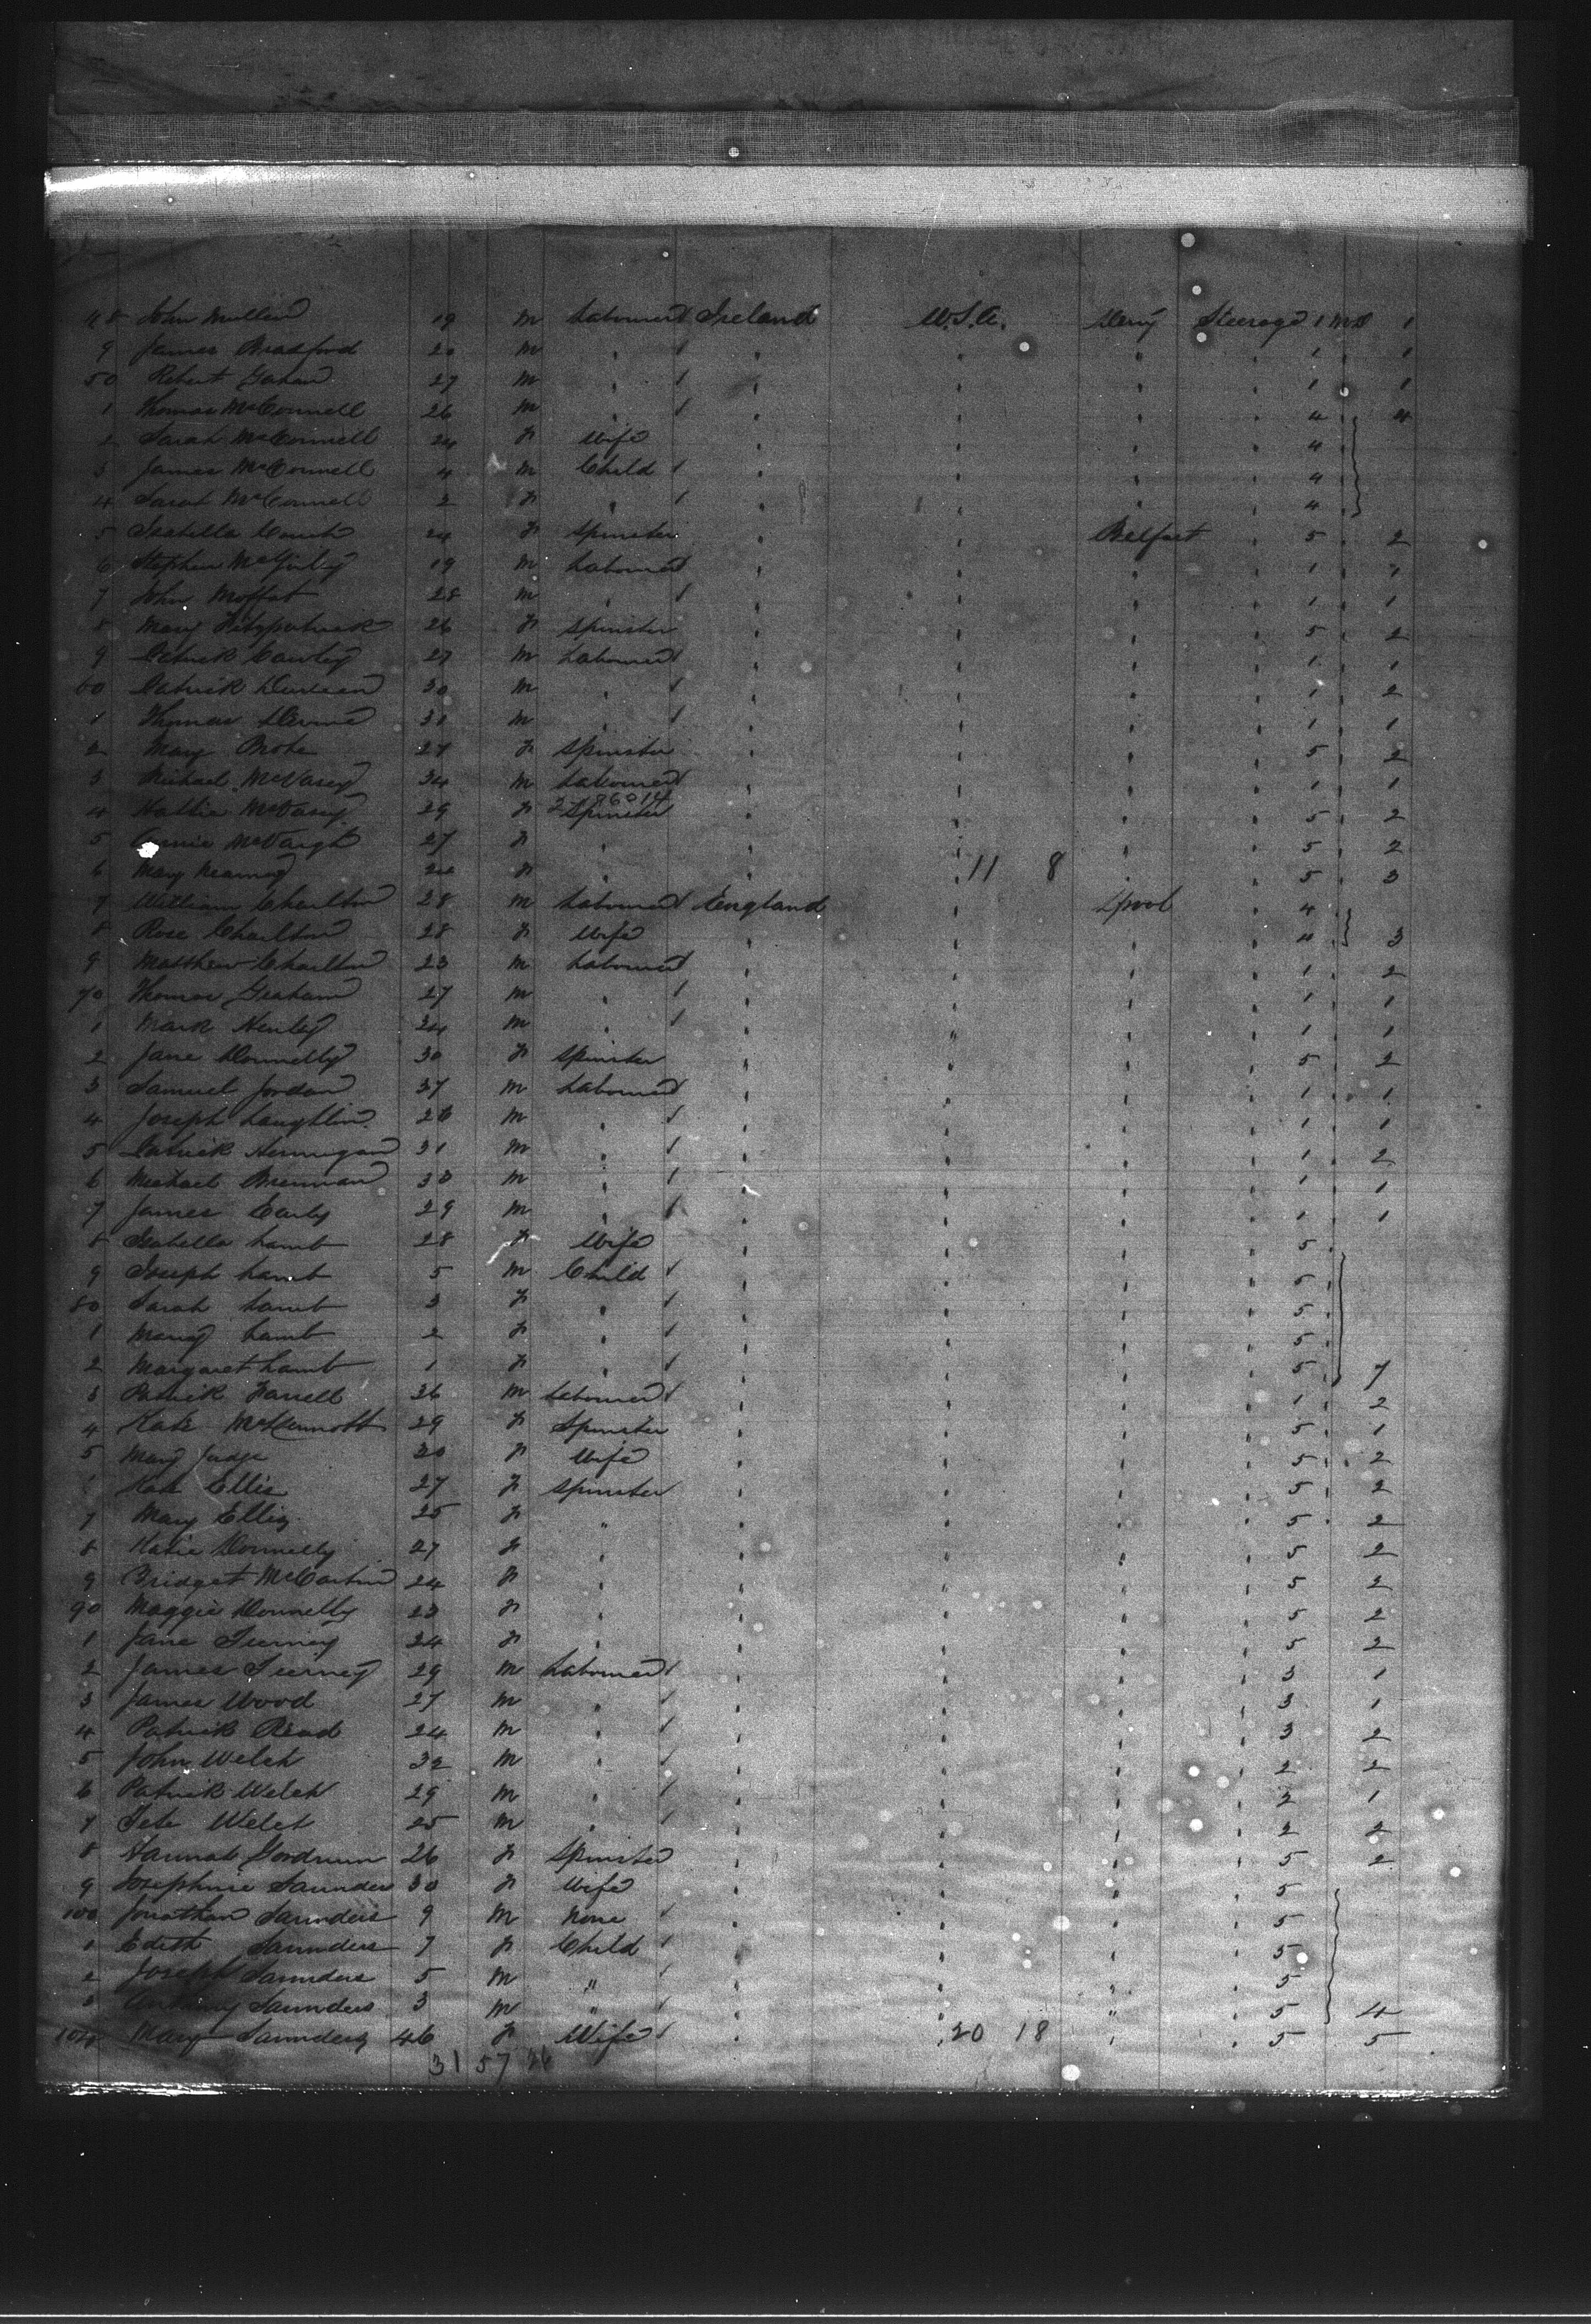 48 John Mullen 19 M Labourer Ireland U.S.A. Derry Steerage 1 1
9 James Bradford 20 M " " " " " 1 1
50 Robert Gahan 27 M " " " " " 1 1
1 Thomas McConnell 26 M " " " " " 4 4
2 Sarah McConnell 24 F Wife " " " " 4
3 James McConnell 4 M Child " " " " 4
4 Sarah McConnell 2 F " " " " " 4
5 Isabella 24 F Spinster " " Belfast " 5 2
6 Stephen McGinley 19 M Labourer " " " " 1 1
7 John Moffat 28 M " " " " " 1 1
8 Mary Fitzpatrick 26 F Spinster " " " " 5 2
9 Patrick Cawley 27 M Labourer " " " " 1 1
60 Patrick 30 M " " " " " 1 2
1 Thomas Devine 31 M " " " " " 1 1
2 Mary 27 F Spinster " " " " 5 2
3 Michael McVasey 34 M Labourer " " " " 1 1
4 Hattie McVasey 29 F Spinster " " " " 5 2
5 McVaigh 27 F " " " " " 5 2
6 Mary Kearney 24 F " " " 11 8 " " 5 3
7 William Charlton 28 M Labourer England " Lpool " 4
8 Rose Charlton 28 F Wife " " " " 4 3
9 Matthew Charlton 23 M Labourer " " " " 1 2
70 Thomas Graham 27 M " " " " " 1 1
1 Mark Henley 24 M " " " " " 1 1
2 Jane Donnelly 30 F Spinster " " " " 5 2
3 Samuel Jordan 37 M Labourer " " " " 1 1
4 Joseph Laughlin 26 M " " " " " 1 1
5 Patrick Hennigan 31 M " " " " " 1 2
6 Michael Brennan 30 M " " " " " 1 1
7 James Early 29 M " " " " " 1 1
8 Isabella Lamb 28 F Wife " " " " 5
9 Joseph Lamb 5 M Child " " " " 5
80 Sarah Lamb 3 F " " " " " 5
1 Mary Lamb 2 F " " " " " 5
2 Margaret Lamb 1 F " " " " " 5 7
3 Patrick Farrell 26 M Labourer " " " " 1 2
4 Kate McDermott 29 F Spinster " " " " 5 1
5 Mary Judge 30 F Wife " " " " 5 2
Kate Ellis 27 F Spinster " " " " 5 2
7 Mary Ellis 25 F " " " " " 5 2
8 Katie Donnelly 27 F " " " " " 5 2
9 Bridget McCartin 24 F " " " " " 5 2
90 Maggie Donnelly 23 F " " " " " 5 2
1 Jane Tierney 24 F " " " " " 5 2
2 James Tierney 29 M Labourer " " " " 3 1
3 James Wood 27 M " " " " " 3 1
4 Patrick Read 24 M " " " " " 3 2
5 John Welch 32 M " " " " " 2 2
6 Patrick Welch 29 M " " " " " 2 1
7 Pete Welch 25 M " " " " " 2 2
8 Hannah Goodman 26 F Spinster " " " " 5 2
9 Josephine Saunders 30 F Wife " " " " 5
100 Jonathan Saunders 9 M None " " " " 5
1 Edith Saunders 7 F Child " " " " 5
2 Joseph Saunders 5 M " " " " " 5
3 Anthony Saunders 3 M " " " " " 5 4
104 Mary Saunders 46 F Wife " " 20 18 " " 5 5
31 57 26